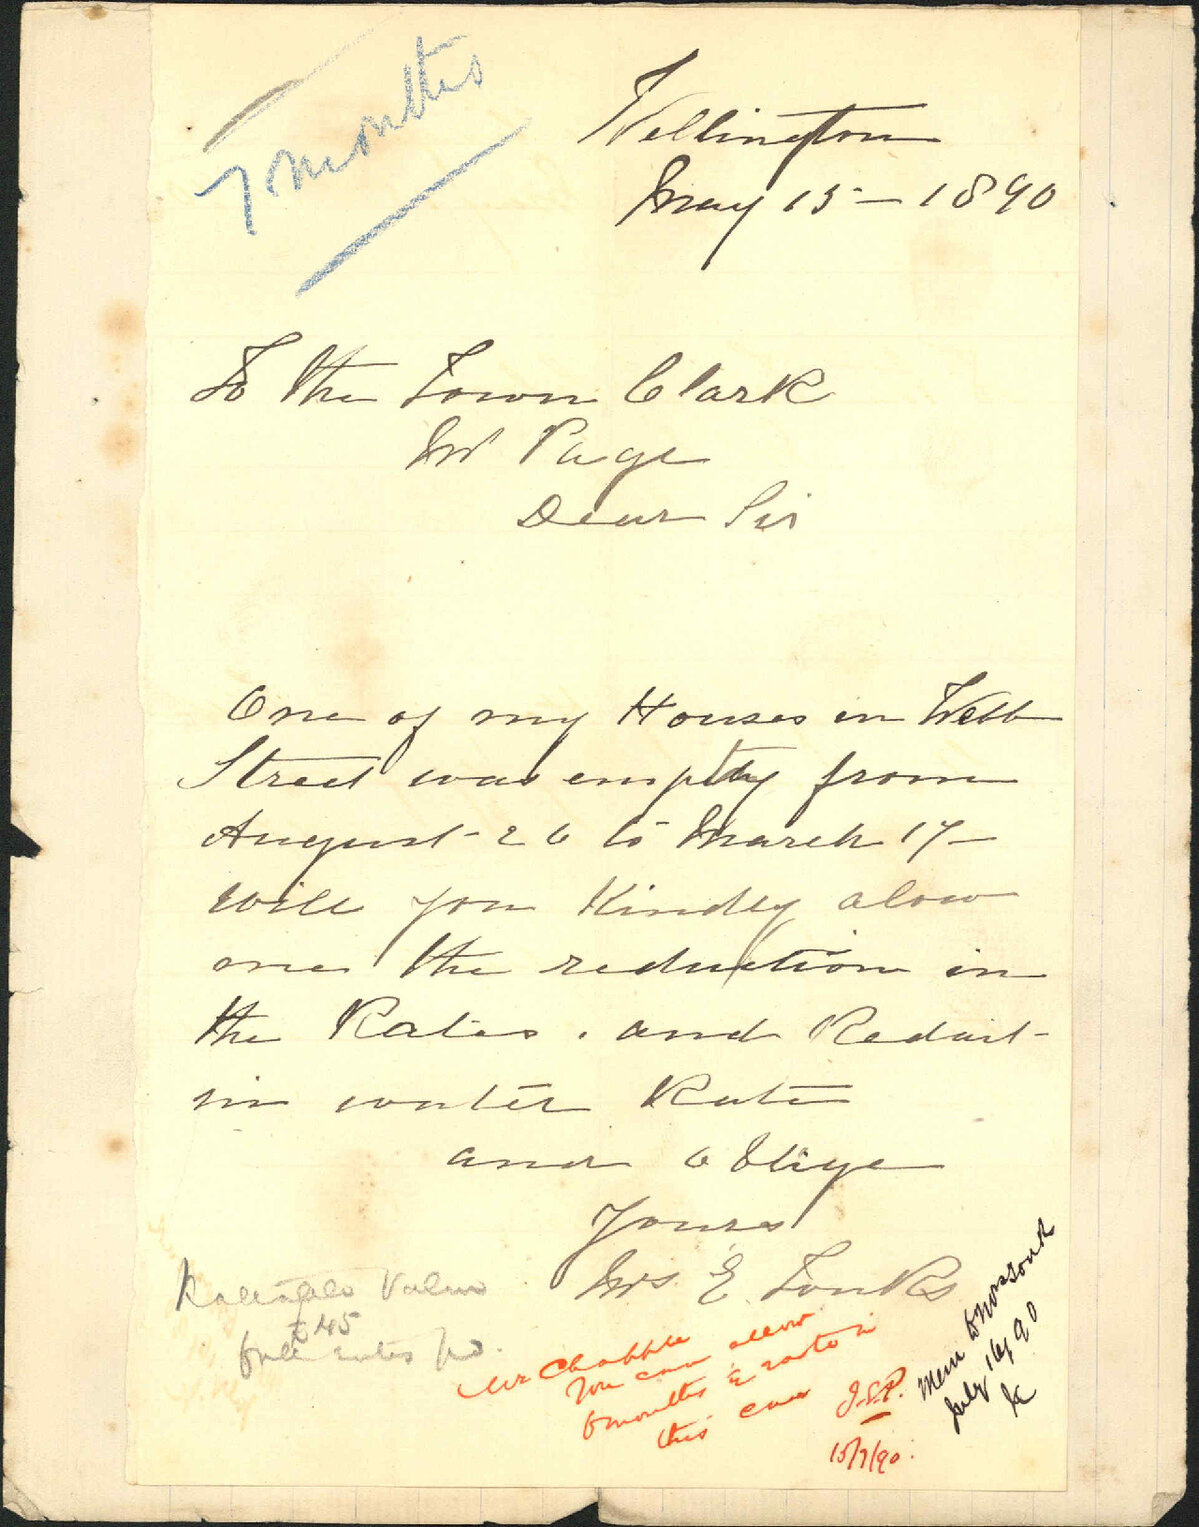 7 months
Wellington
May 15 - 1890
To the Town Clark
Mr Page
Dear Sir
One of my Houses in Webb
Street was empty from
August 26 to March 17 -
will you Kindly alow
me the reduction in
the Rates. and Reduct-
in water Rate
and oblige
Yours
Mrs E Tonks
Rateable Value
£45
Full rates pd.
Mr Chapple
You can allow
6 months rate in
this case
J.S.P.
15/7/90.
Mem
July 16/90